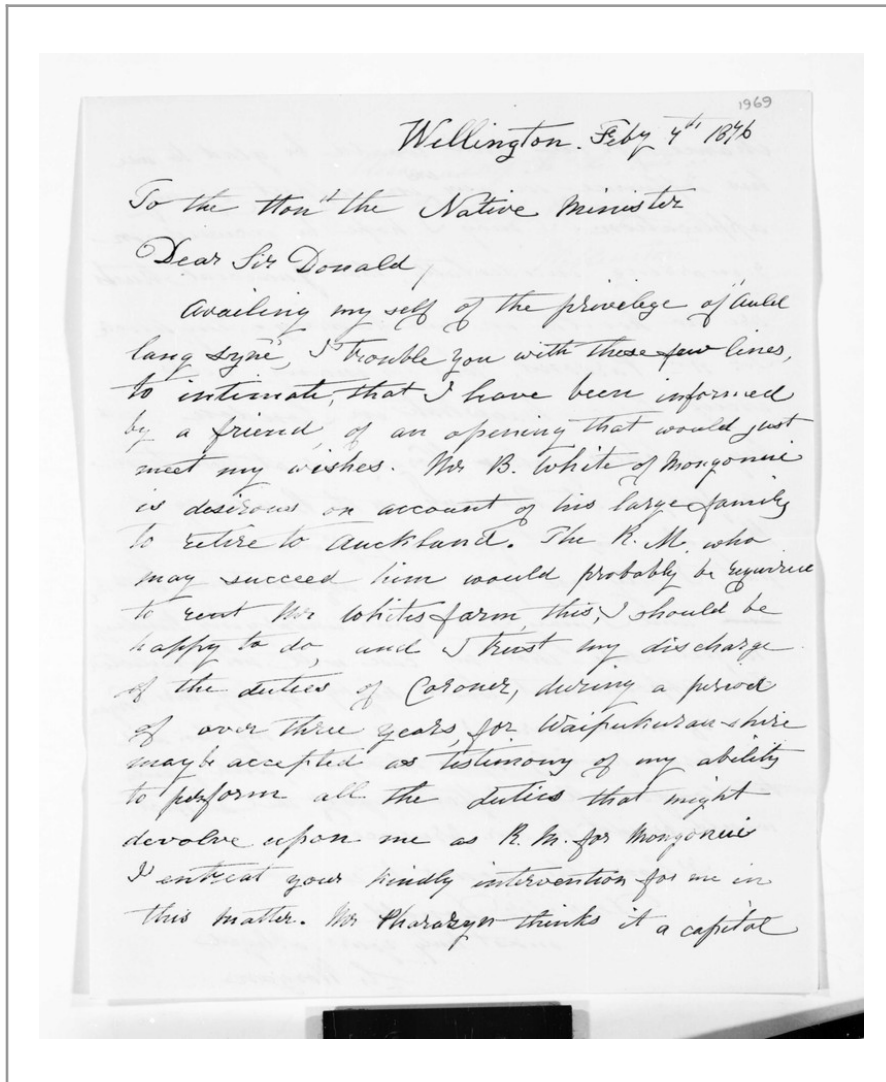 1969
Wellington. Feby 4th 1876
To the Honll the Native Minister
Dear Sir Donald,
Availing my self of the privilege of "Auld
lang syne", I trouble you with these few lines,
to intimate, that I have been informed
by a friend, of an opening that would just
meet my wishes. Mr B. White of Mongonui
is desirous on account of his large family
to retire to Auckland. The R. M. who
may succeed him would probably be required
to rent Mr Whites farm, this, I should be
happy to do, and I trust my discharge
of the duties of Coroner, during a period
of over three years, for Waipukurau-shire
may be accepted as testimony of my ability
to perform all the duties that might
devolve upon me as R. M. for Mongonui
I entreat your kindly intervention for me in
this matter. Mr Pharazyn thinks it a capital